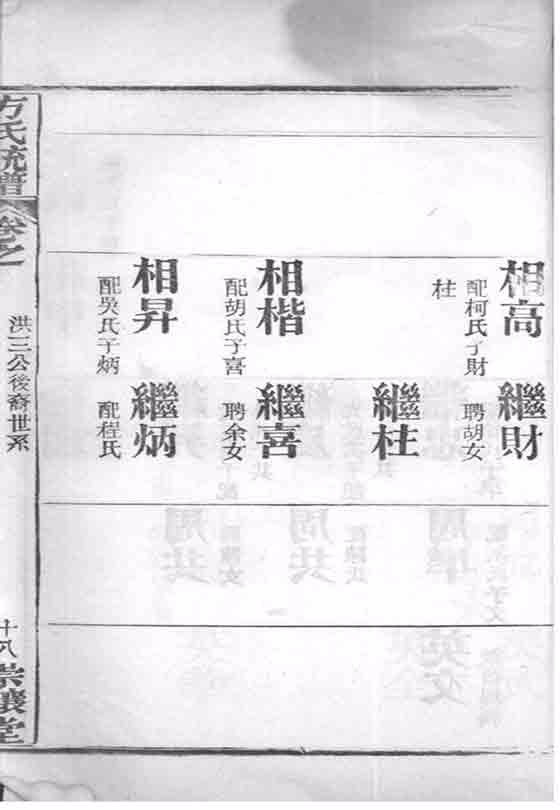 相高
配柯氏子財
柱
相楷
配胡氏子喜
相昇
配吳氏子炳
繼財
聘胡女
繼柱
繼喜
聘余女
繼炳
配程氏
方氏統譜
卷之
洪三公後裔世系
十八
崇讓堂